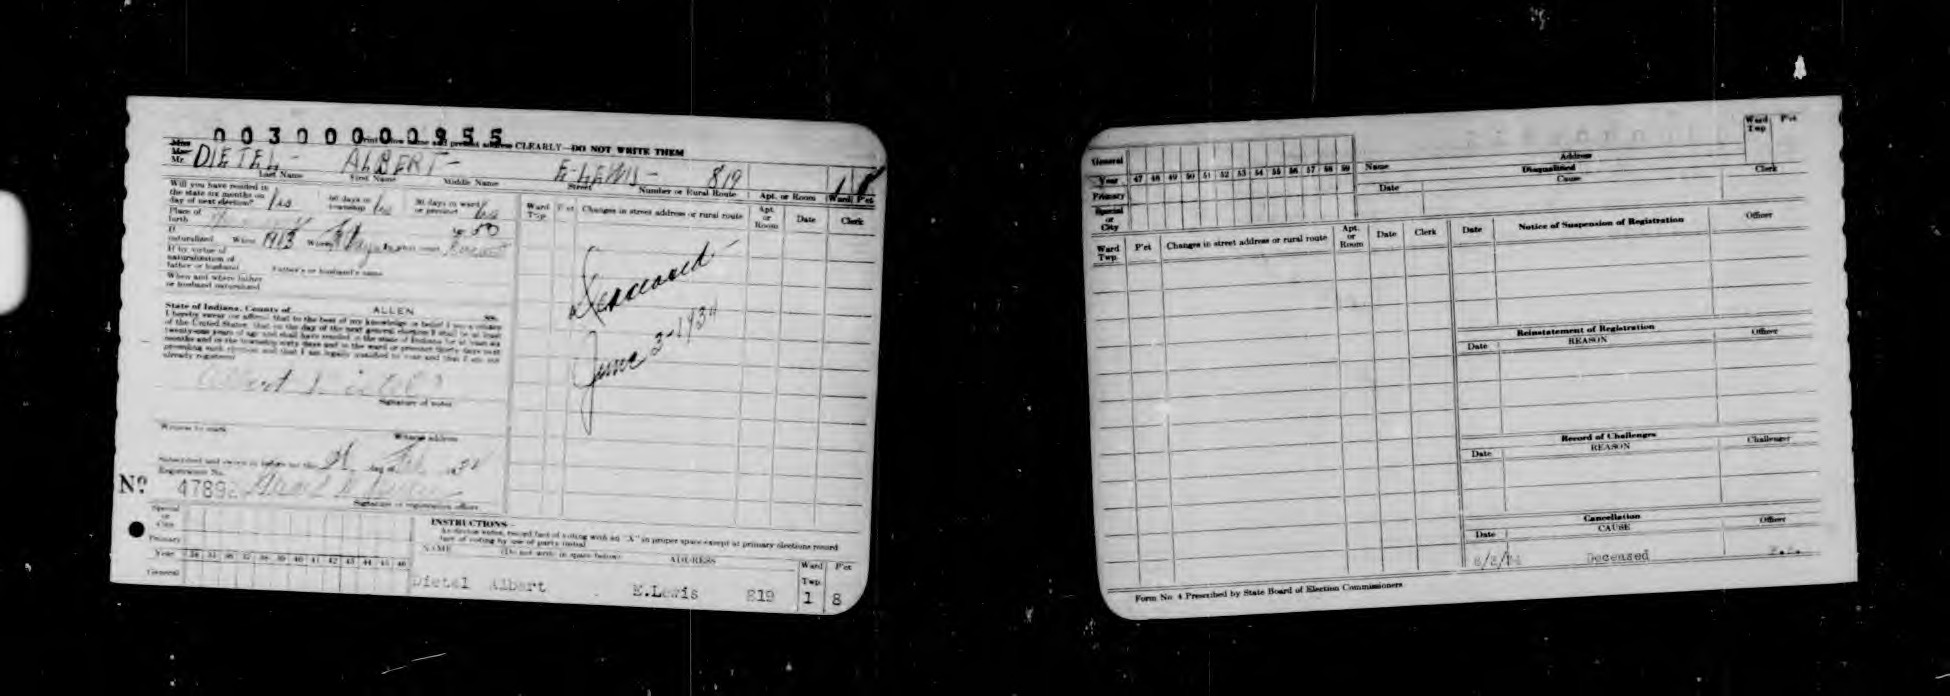 00300000955
Print below name and present address CLEARLY—DO NOT WRITE THEM
Miss
Mrs.
Mr. DIETEL- ALBERT- E-LEWIS- 819 1 8
Last Name First Name Middle Name Street Number or Rural Route Apt. or Room Ward P'ct
Will you have resided in the state six months on day of next election? Yes 60 days in township Yes 30 days in ward or precinct Yes
Place of birth
If naturalized When 1913 Where Ft Wayne In what court
If by virtue of naturalization of father or husband Father's or husband's name
When and where father or husband naturalized
State of Indiana, County of ALLEN ss.
I hereby swear (or affirm) that to the best of my knowledge or belief I am a citizen
of the United States, that on the day of the next general election I shall be at least
twenty-one years of age and shall have resided in the state of Indiana for at least six
months and in the township sixty days and in the ward or precinct thirty days next
preceding such election and that I am legally entitled to vote and that I am not
already registered
Albert Dietel
Signature of voter
Witness to mark Witness address
Subscribed and sworn to before me this day of
Registration No.
No. 47892
Signature of registration officer
Ward Twp. P'ct Changes in street address or rural route Apt. or Room Date Clerk
Deceased-
June 3-1934
Special or City
Primary
Year 34 35 36 37 38 39 40 41 42 43 44 45 46
General
INSTRUCTIONS
As elector votes, record fact of voting with an "X" in proper space except at primary elections record
fact of voting by use of party initial
NAME (Do not write in space below) ADDRESS Ward Twp. P'ct
Dietel Albert E.Lewis 819 1 8
General
Year 47 48 49 50 51 52 53 54 55 56 57 58 59
Primary
Special or City
Name Address Ward Twp P'ct
Disqualified
Date Cause Clerk
Ward Twp. P'ct Changes in street address or rural route Apt. or Room Date Clerk
Date Notice of Suspension of Registration Officer
Reinstatement of Registration
Date REASON Officer
Record of Challenges
Date REASON Challenger
Cancellation
Date CAUSE Officer
Deceased
Form No. 4 Prescribed by State Board of Election Commissioners